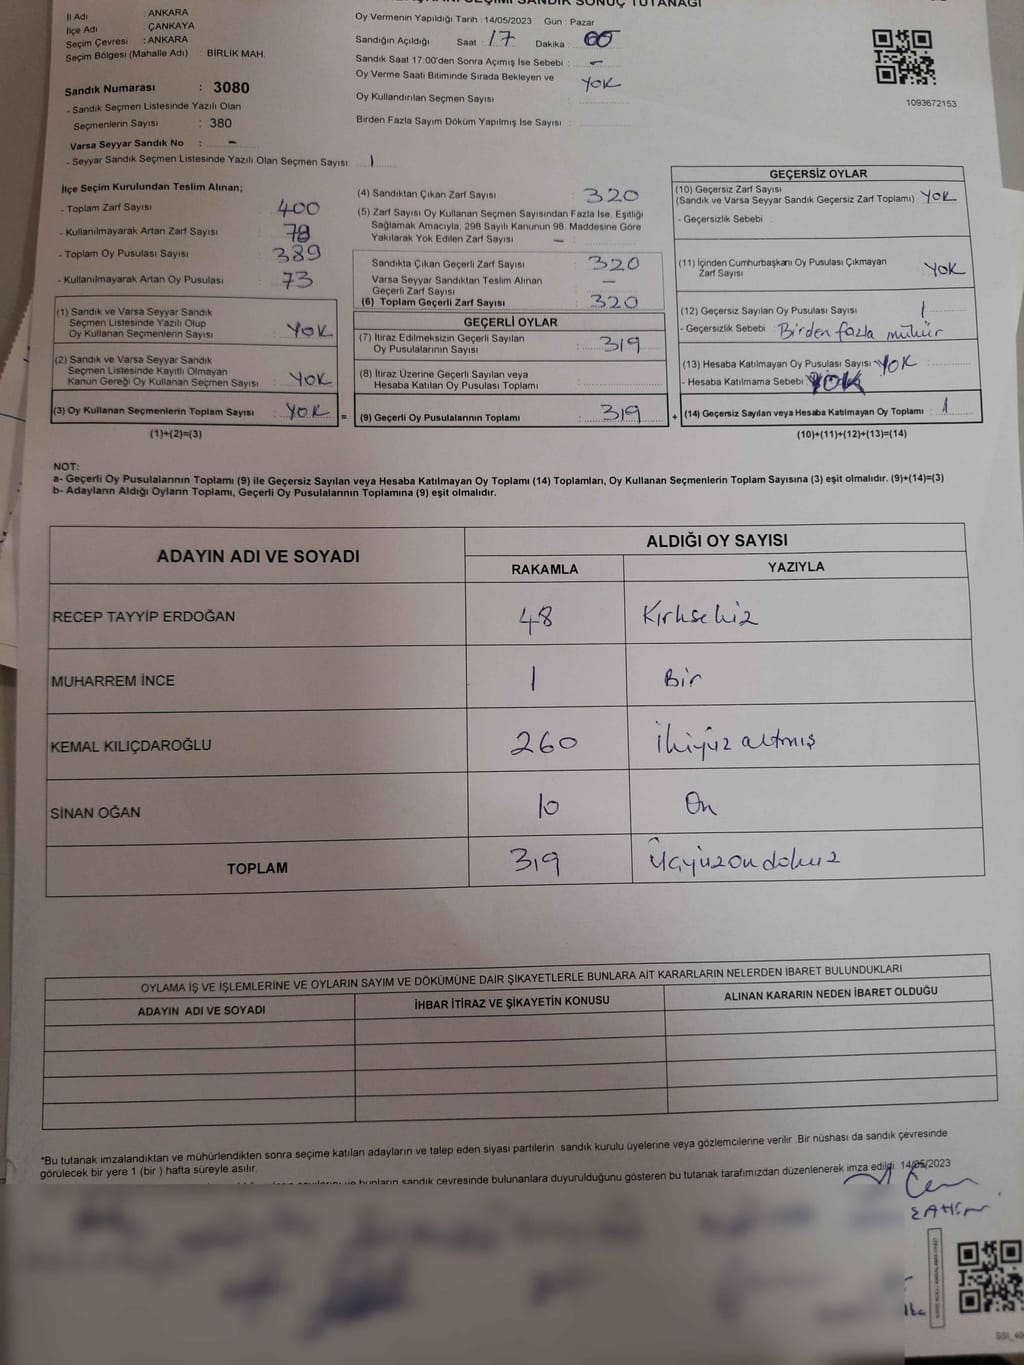 SEÇİMİ SANDIK SONUÇ TUTANAĞI
İl Adı : ANKARA
İlçe Adı : ÇANKAYA
Seçim Çevresi : ANKARA
Seçim Bölgesi (Mahalle Adı) : BİRLİK MAH.
Sandık Numarası : 3080
- Sandık Seçmen Listesinde Yazılı Olan
Seçmenlerin Sayısı : 380
Varsa Seyyar Sandık No : -
- Seyyar Sandık Seçmen Listesinde Yazılı Olan Seçmen Sayısı:
Oy Vermenin Yapıldığı Tarih : 14/05/2023 Gün : Pazar
Sandığın Açıldığı Saat : 17 Dakika : 00
Sandık Saat 17:00'den Sonra Açımış İse Sebebi : -
Oy Verme Saati Bitiminde Sırada Bekleyen ve YOK
Oy Kullandırılan Seçmen Sayısı :
Birden Fazla Sayım Döküm Yapılmış İse Sayısı :
1093672153
İlçe Seçim Kurulundan Teslim Alınan;
- Toplam Zarf Sayısı : 400
- Kullanılmayarak Artan Zarf Sayısı : 78
- Toplam Oy Pusulası Sayısı : 389
- Kullanılmayarak Artan Oy Pusulası : 73
(1) Sandık ve Varsa Seyyar Sandık
Seçmen Listesinde Yazılı Olup
Oy Kullanan Seçmenlerin Sayısı : YOK
(2) Sandık ve Varsa Seyyar Sandık
Seçmen Listesinde Kayıtlı Olmayan
Kanun Gereği Oy Kullanan Seçmen Sayısı : YOK
(3) Oy Kullanan Seçmenlerin Toplam Sayısı : YOK =
(1)+(2)=(3)
(4) Sandıktan Çıkan Zarf Sayısı : 320
(5) Zarf Sayısı Oy Kullanan Seçmen Sayısından Fazla İse, Eşitliği
Sağlamak Amacıyla, 298 Sayılı Kanunun 98. Maddesine Göre
Yakılarak Yok Edilen Zarf Sayısı : -
Sandıkta Çıkan Geçerli Zarf Sayısı : 320
Varsa Seyyar Sandıktan Teslim Alınan
Geçerli Zarf Sayısı : -
(6) Toplam Geçerli Zarf Sayısı : 320
GEÇERLİ OYLAR
(7) İtiraz Edilmeksizin Geçerli Sayılan
Oy Pusulalarının Sayısı : 319
(8) İtiraz Üzerine Geçerli Sayılan veya
Hesaba Katılan Oy Pusulası Toplamı :
(9) Geçerli Oy Pusulalarının Toplamı : 319 +
GEÇERSİZ OYLAR
(10) Geçersiz Zarf Sayısı
(Sandık ve Varsa Seyyar Sandık Geçersiz Zarf Toplamı) YOK
- Geçersizlik Sebebi :
(11) İçinden Cumhurbaşkanı Oy Pusulası Çıkmayan
Zarf Sayısı YOK
(12) Geçersiz Sayılan Oy Pusulası Sayısı : 1
- Geçersizlik Sebebi : Birden fazla mühür
(13) Hesaba Katılmayan Oy Pusulası Sayısı YOK
- Hesaba Katılmama Sebebi YOK
(14) Geçersiz Sayılan veya Hesaba Katılmayan Oy Toplamı : 1
(10)+(11)+(12)+(13)=(14)
NOT:
a- Geçerli Oy Pusulalarının Toplamı (9) ile Geçersiz Sayılan veya Hesaba Katılmayan Oy Toplamı (14) Toplamları, Oy Kullanan Seçmenlerin Toplam Sayısına (3) eşit olmalıdır. (9)+(14)=(3)
b- Adayların Aldığı Oyların Toplamı, Geçerli Oy Pusulalarının Toplamına (9) eşit olmalıdır.
ADAYIN ADI VE SOYADI ALDIĞI OY SAYISI
RAKAMLA YAZIYLA
RECEP TAYYİP ERDOĞAN 48 Kırksekiz
MUHARREM İNCE 1 Bir
KEMAL KILIÇDAROĞLU 260 İkiyüz altmış
SİNAN OĞAN 10 On
TOPLAM 319 Üçyüzondokuz
OYLAMA İŞ VE İŞLEMLERİNE VE OYLARIN SAYIM VE DÖKÜMÜNE DAİR ŞİKAYETLERLE BUNLARA AİT KARARLARIN NELERDEN İBARET BULUNDUKLARI
ADAYIN ADI VE SOYADI İHBAR İTİRAZ VE ŞİKAYETİN KONUSU ALINAN KARARIN NEDEN İBARET OLDUĞU
*Bu tutanak imzalandıktan ve mühürlendikten sonra seçime katılan adayların ve talep eden siyasi partilerin sandık kurulu üyelerine veya gözlemcilerine verilir .Bir nüshası da sandık çevresinde
görülecek bir yere 1 (bir ) hafta süreyle asılır.
bunların sandık çevresinde bulunanlara duyurulduğunu gösteren bu tutanak tarafımızdan düzenlenerek imza edildi. 14/05/2023